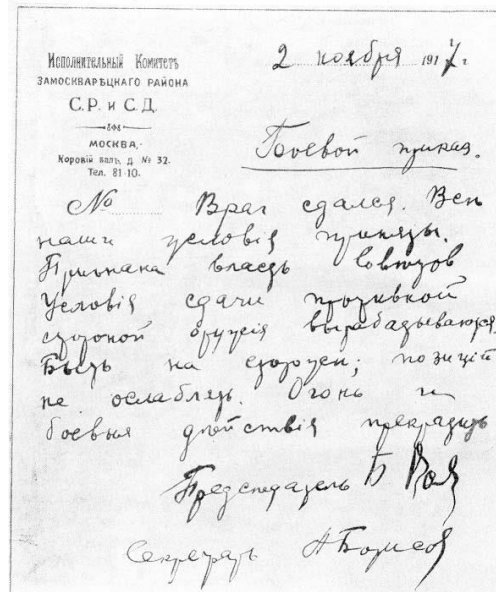 Исполнительный Комитетъ
ЗАМОСКВАРѢЦКАГО РАЙОНА
С.Р. и С.Д.
МОСКВА,
Коровій валъ, д. № 32.
Тел. 81-10.
2 ноября 1917 г.
Боевой приказ.
№ Враг сдался. Все
наши условія приняты.
Признана власть Советов
Условія сдачи противной
стороной оружія вырабатываются.
Быть на стороже; позицій
не ослаблять. Огонь и
боевыя дѣйствія прекратить
Председатель Б Вол
Секретарь А Борисов